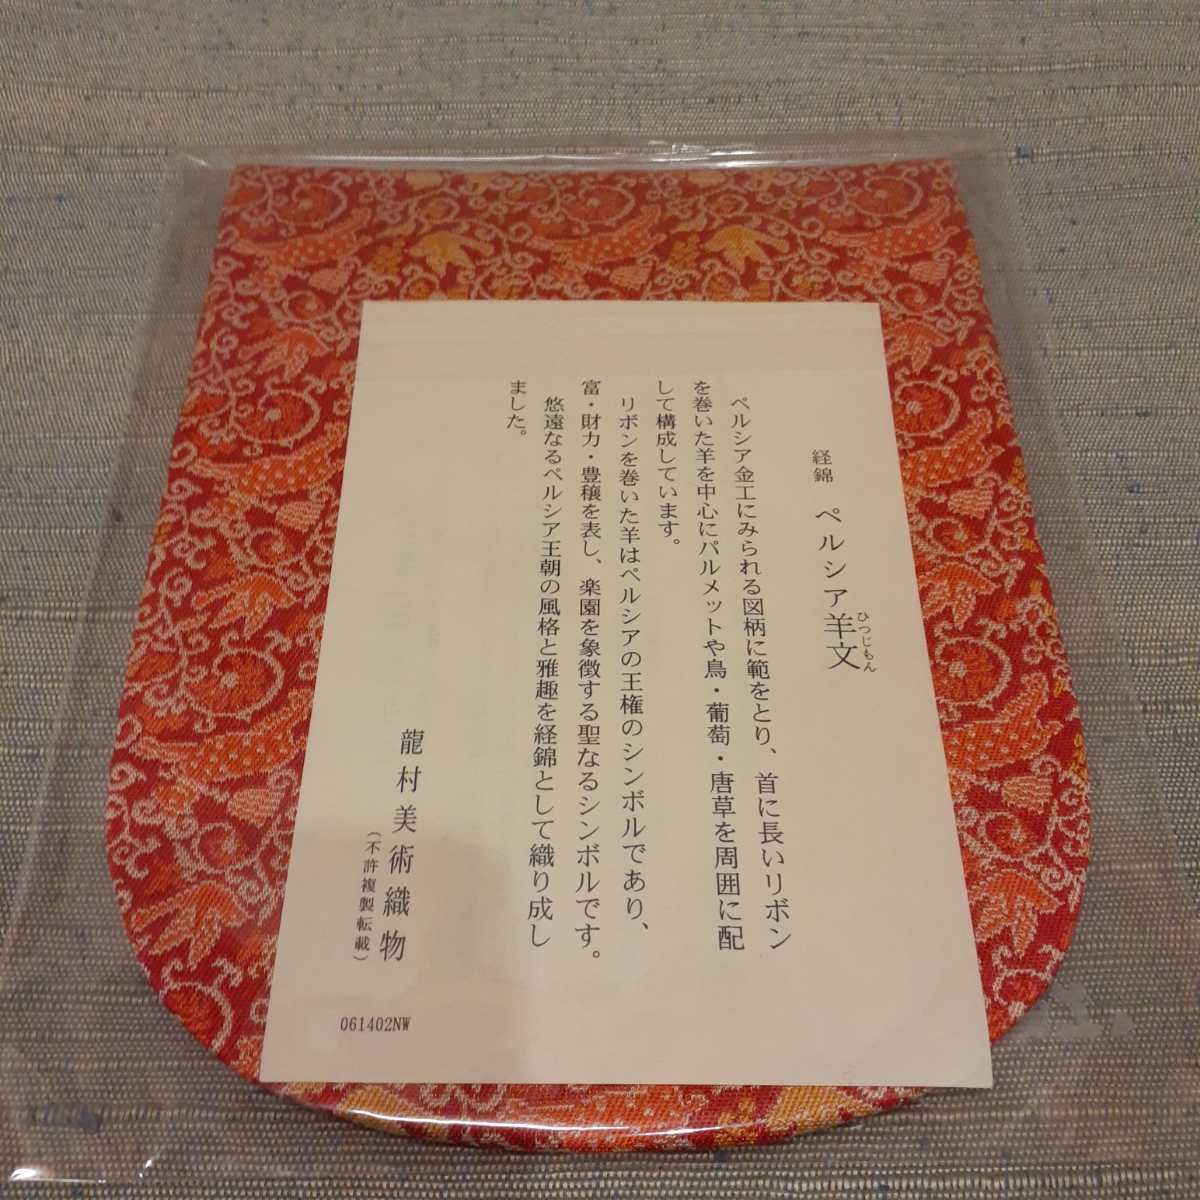 経錦 ペルシア羊文
ひつじもん
ペルシア金工にみられる図柄に範をとり、首に長いリボン
を巻いた羊を中心にパルメットや鳥・葡萄・唐草を周囲に配
して構成しています。
リボンを巻いた羊はペルシアの王権のシンボルであり、
富・財力・豊穣を表し、楽園を象徴する聖なるシンボルです。
悠遠なるペルシア王朝の風格と雅趣を経錦として織り成し
ました。
龍村美術織物
(不許複製転載)
061402NW